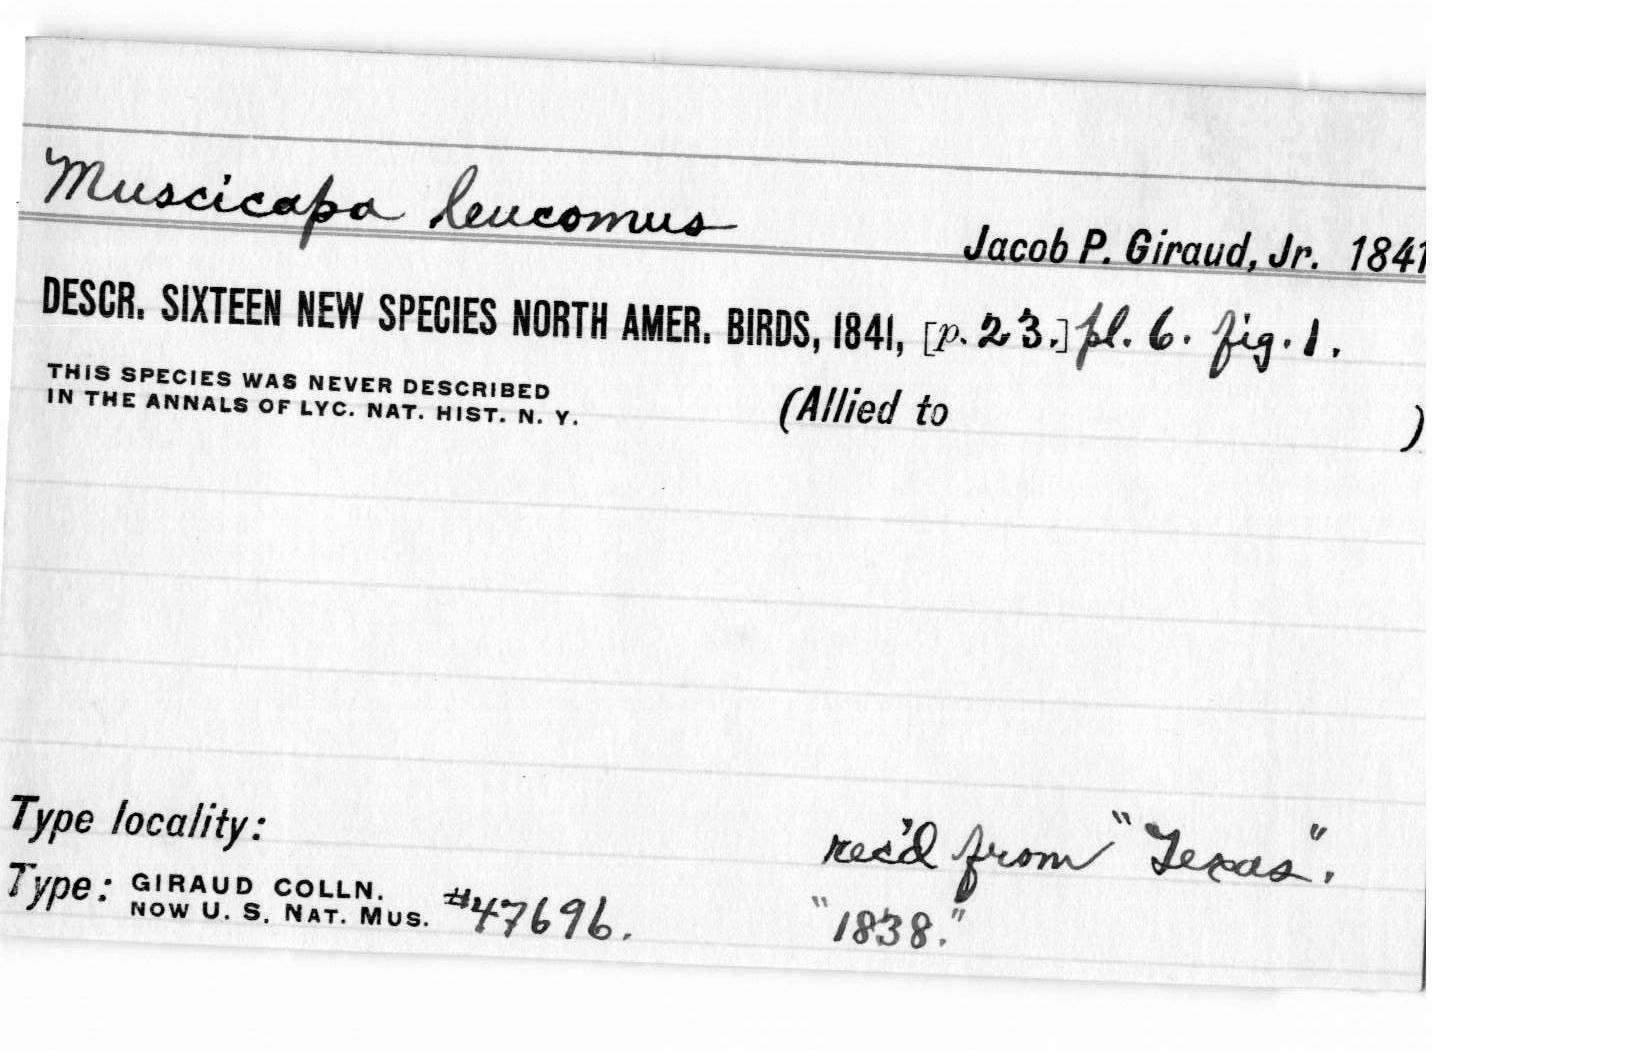 Muscicapa leucomus
Jacob P. Giraud, Jr. 1841
DESCR. SIXTEEN NEW SPECIES NORTH AMER. BIRDS, 1841, [p. 23.] pl. 6. fig. 1.
THIS SPECIES WAS NEVER DESCRIBED
IN THE ANNALS OF LYC. NAT. HIST. N. Y.
(Allied to )
Type locality:
rec'd from "Texas".
Type: GIRAUD COLLN.
NOW U. S. NAT. MUS. #47696.
"1838."